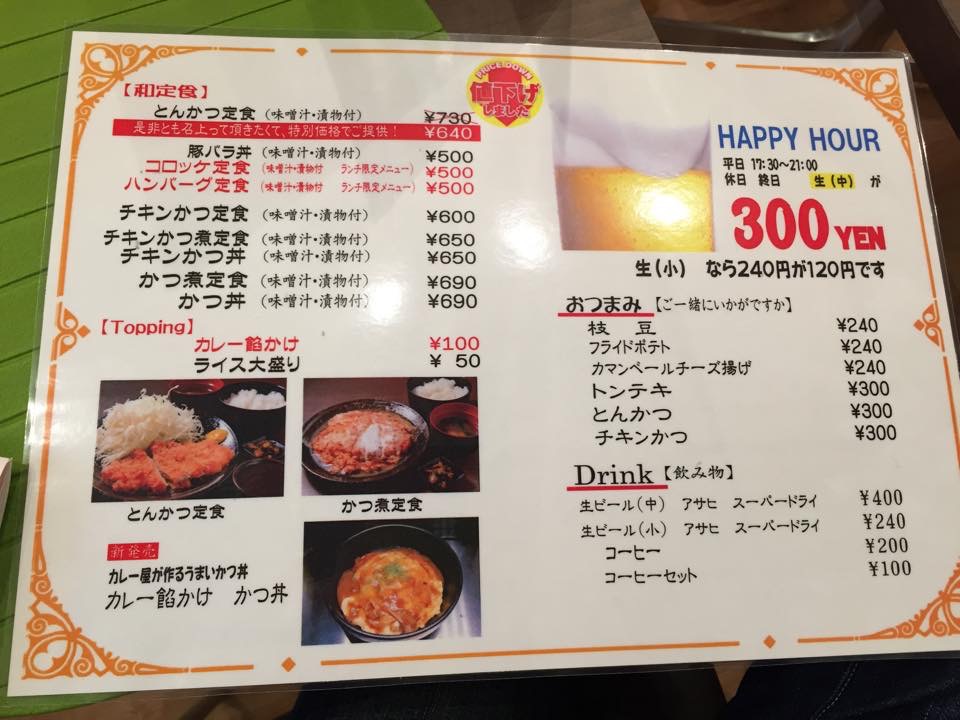 【和定食】
とんかつ定食（味噌汁・漬物付） ¥730
是非とも召上って頂きたくて、特別価格でご提供！ ¥640
豚バラ丼（味噌汁・漬物付） ¥500
コロッケ定食（味噌汁・漬物付 ランチ限定メニュー） ¥500
ハンバーグ定食（味噌汁・漬物付 ランチ限定メニュー） ¥500
チキンかつ定食（味噌汁・漬物付） ¥600
チキンかつ煮定食（味噌汁・漬物付） ¥650
チキンかつ丼（味噌汁・漬物付） ¥650
かつ煮定食（味噌汁・漬物付） ¥690
かつ丼（味噌汁・漬物付） ¥690
【Topping】
カレー餡かけ ¥100
ライス大盛り ¥ 50
とんかつ定食
かつ煮定食
新発売
カレー屋が作るうまいかつ丼
カレー餡かけ かつ丼
PRICE DOWN
値下げ
しました
HAPPY HOUR
平日 17:30～21:00
休日 終日 生（中） が
300 YEN
生（小） なら240円が120円です
おつまみ【ご一緒にいかがですか】
枝 豆 ¥240
フライドポテト ¥240
カマンペールチーズ揚げ ¥240
トンテキ ¥300
とんかつ ¥300
チキンかつ ¥300
Drink【飲み物】
生ビール（中） アサヒ スーパードライ ¥400
生ビール（小） アサヒ スーパードライ ¥240
コーヒー ¥200
コーヒーセット ¥100